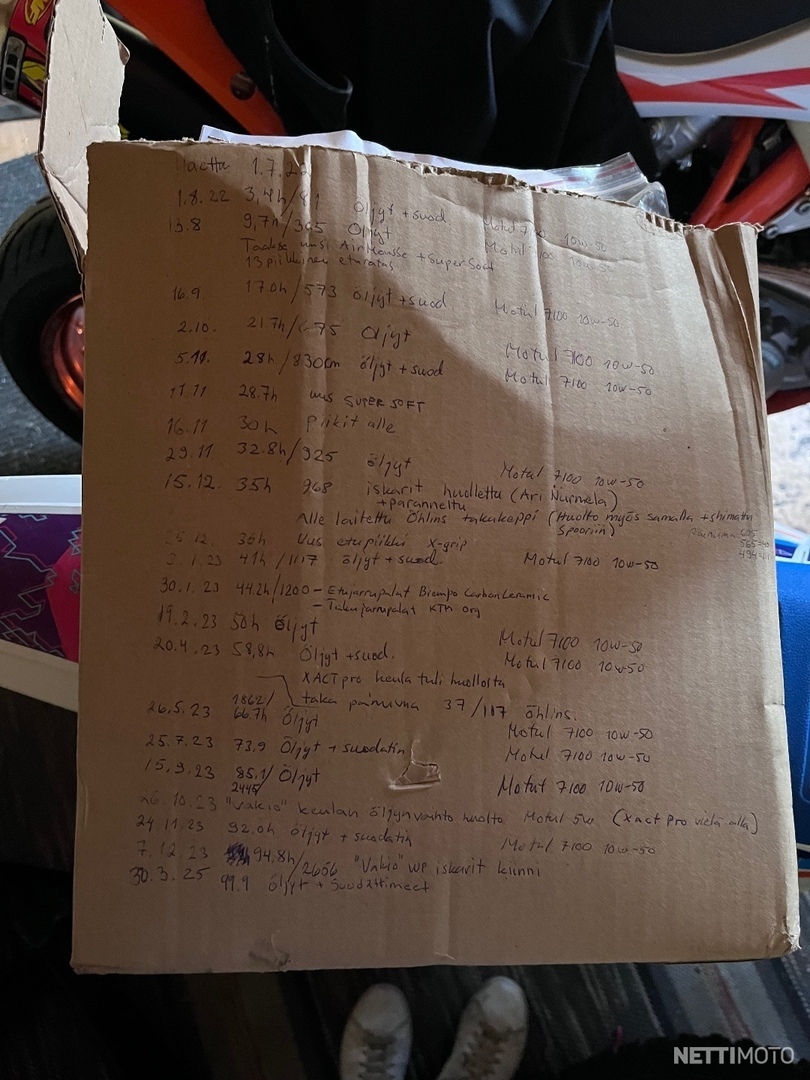 1.7.22
1.8.22 3,4h/81 Öljyt + suod. Motul 7100 10w-50
13.8 9,7h/365 Öljyt Motul 7100 10w-50
Taakse uusi AirMousse + SuperSoft
13 piikkinen eturatas
16.9. 17.0h/573 öljyt + suod. Motul 7100 10w-50
2.10. 21.7h/ 75 Öljyt Motul 7100 10w-50
5.11. 28h/830km öljyt + suod Motul 7100 10w-50
11.11 28.7h uus SUPER SOFT
16.11 30h Piikit alle
29.11 32.8h/925 öljyt Motul 7100 10w-50
15.12. 35h 968 iskarit huollettu (Ari Nurmela)
+ paranneltu
Alle laitettu Öhlins takakeppi (Huolto myös samalla + shimattu
36h Uus etupiikki X-grip
3.1.23 41h/1117 öljyt + suod. Motul 7100 10w-50
30.1.23 44.2h/1200 - Etujarrupalat CarbonCeramic
- Takajarrupalat KTM org
19.2.23 50h Öljyt Motul 7100 10w-50
20.4.23 58,8h Öljyt + suod. Motul 7100 10w-50
XACT pro keula tuli huollosta
taka 37/117 öhlins.
26.5.23 1862/66.7h Öljyt Motul 7100 10w-50
25.7.23 73,9 Öljyt + suodatin Motul 7100 10w-50
15.9.23 85.1/2445 Öljyt Motul 7100 10w-50
26.10.23 "Vakio" keulan öljynvaihto huolto Motul 5w (Xact Pro vielä alla)
24.11.23 92.0h öljyt + suodatin Motul 7100 10w-50
7.12.23 94,8h/2656 "Vakio" WP iskarit kiinni
30.3.25 99.9 öljyt + suodattimet
NETTIMOTO